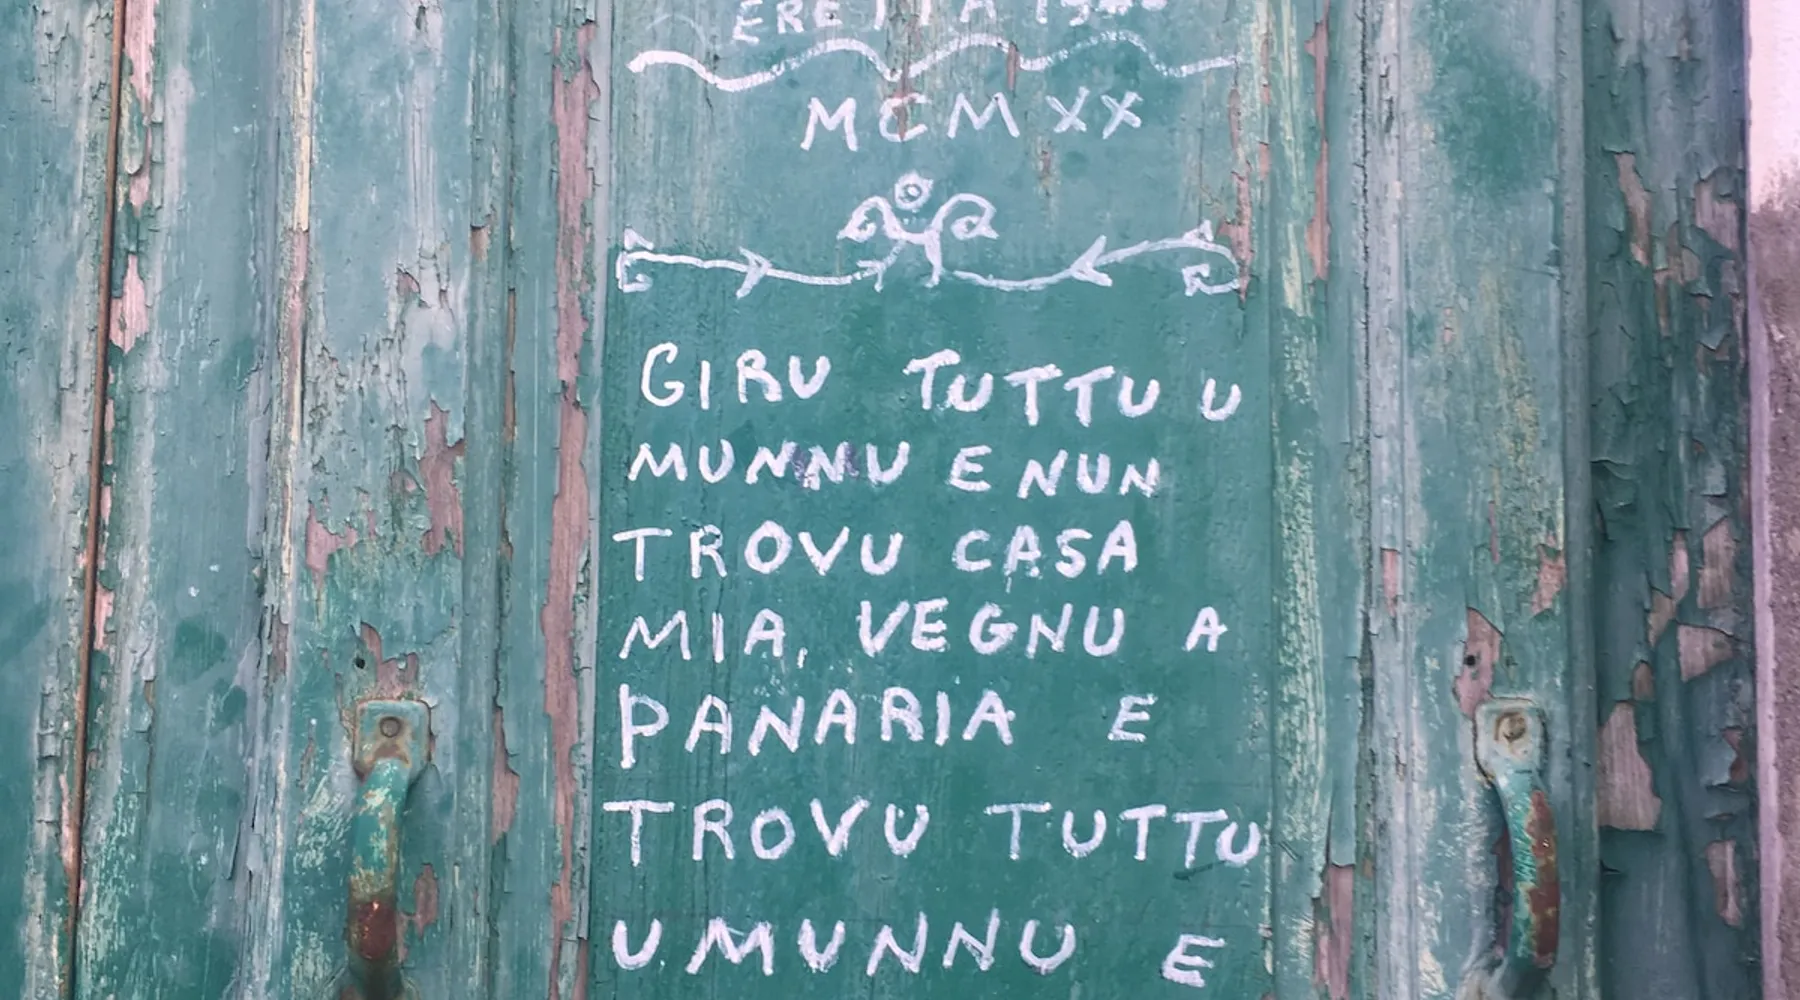 ERETTA
MCMXX
GIRU TUTTU U
MUNNU E NUN
TROVU CASA
MIA, VEGNU A
PANARIA E
TROVU TUTTU
U MUNNU E